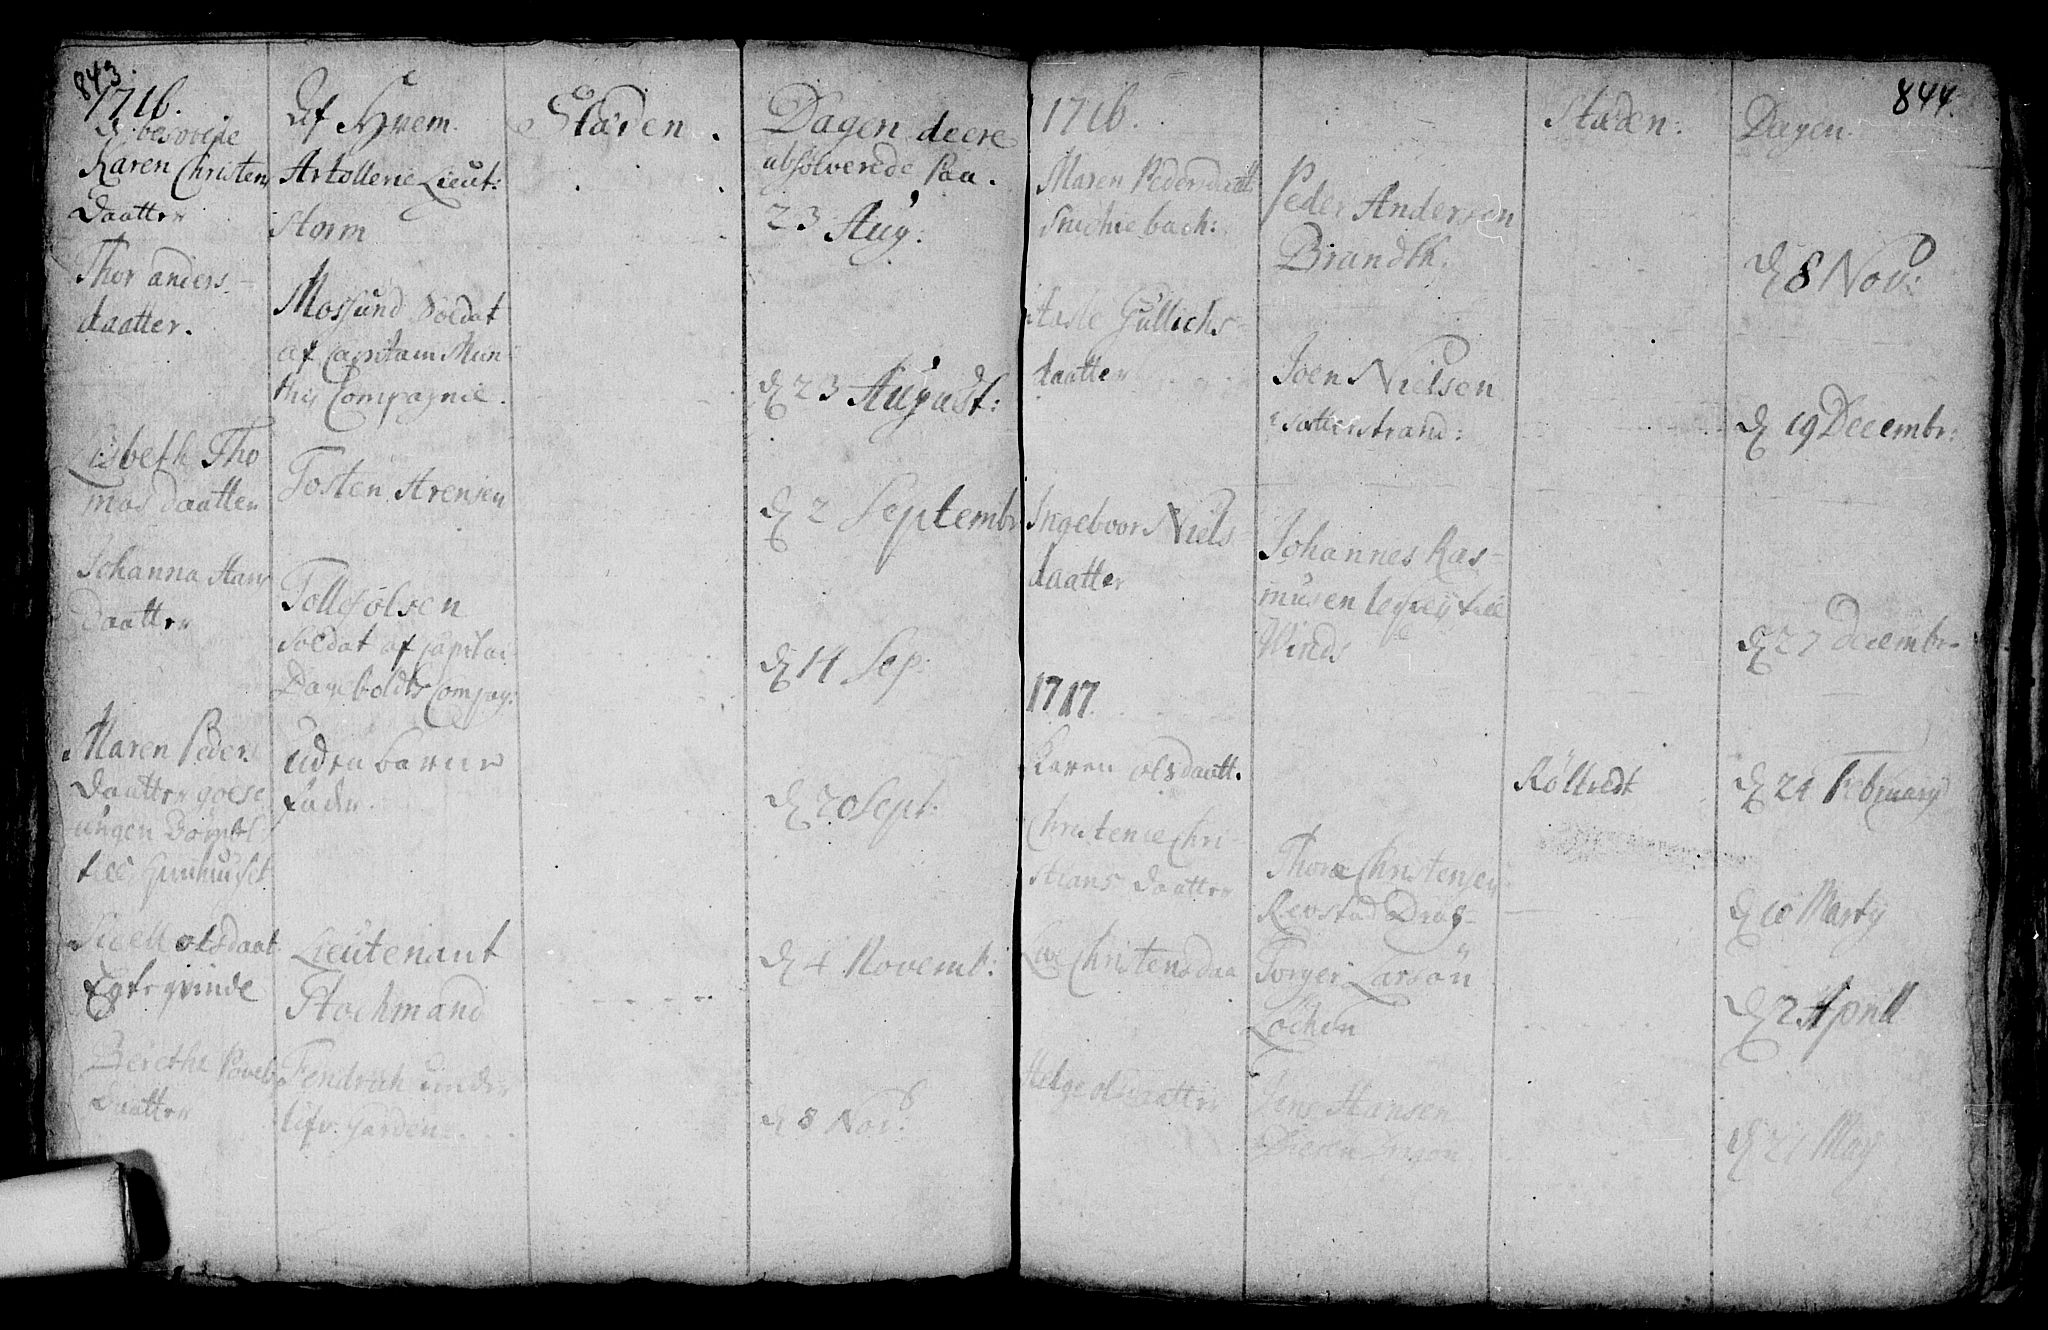 843.
1716.
D. besovene
Af Hvem.
Stæden.
Dagen deere
absolverede Paa.
Karen Christens
Daatter
Artollerie Lieut:
Storm
23 Aug:
Thor anders-
daatter.
Mossund Soldat
af Capitain Mun-
this Compagnie.
d 23 August:
Lisbeth Tho
mas daatter
Tosten Arensen
d 2 Septembr
Johanna Hans
Daatter
Tolles olsen
Soldat af Capitai
Compag:
d 14 Sep:
Maren Peders
Daatter
ungen
till
uden barne
fader.
d 20 Sept:
olsdaat
Egteqvinde
Lieutenant
Stochmand
d 4 Novemb:
Berethe Povels
Daatter
Fendrich under
lifv. Garden
d 8 Nov:
844.
1716.
Stæden:
Dagen.
Maren Pedersdaatt
bach:
Peder Andersen
Brandth.
d 8 Nov:
Aasle Gullichs-
daatter
Joen Nielsen
Sætterstrand:
d 19 Decembr:
Ingeboor Niels
daatter
Johannes Ras-
musen
Winds
d 27 Decembr
1717.
Karen olsdaatt.
Röltvedt
d 24 February
Christenie Chri-
stians daatter
Thore Christensen
Revstad Drag-
d 10 Marty
Live Christensdaa
Torger Larsön
Lochen
d 2 Aprill
Helge olsdaatter
Jens Hansen
d 21 May